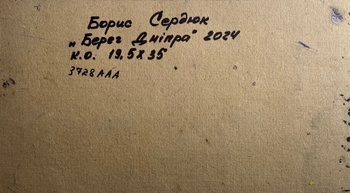 Борис Сердюк
"Берег Дніпра" 2024
к.о. 19,5х35
3728ААА